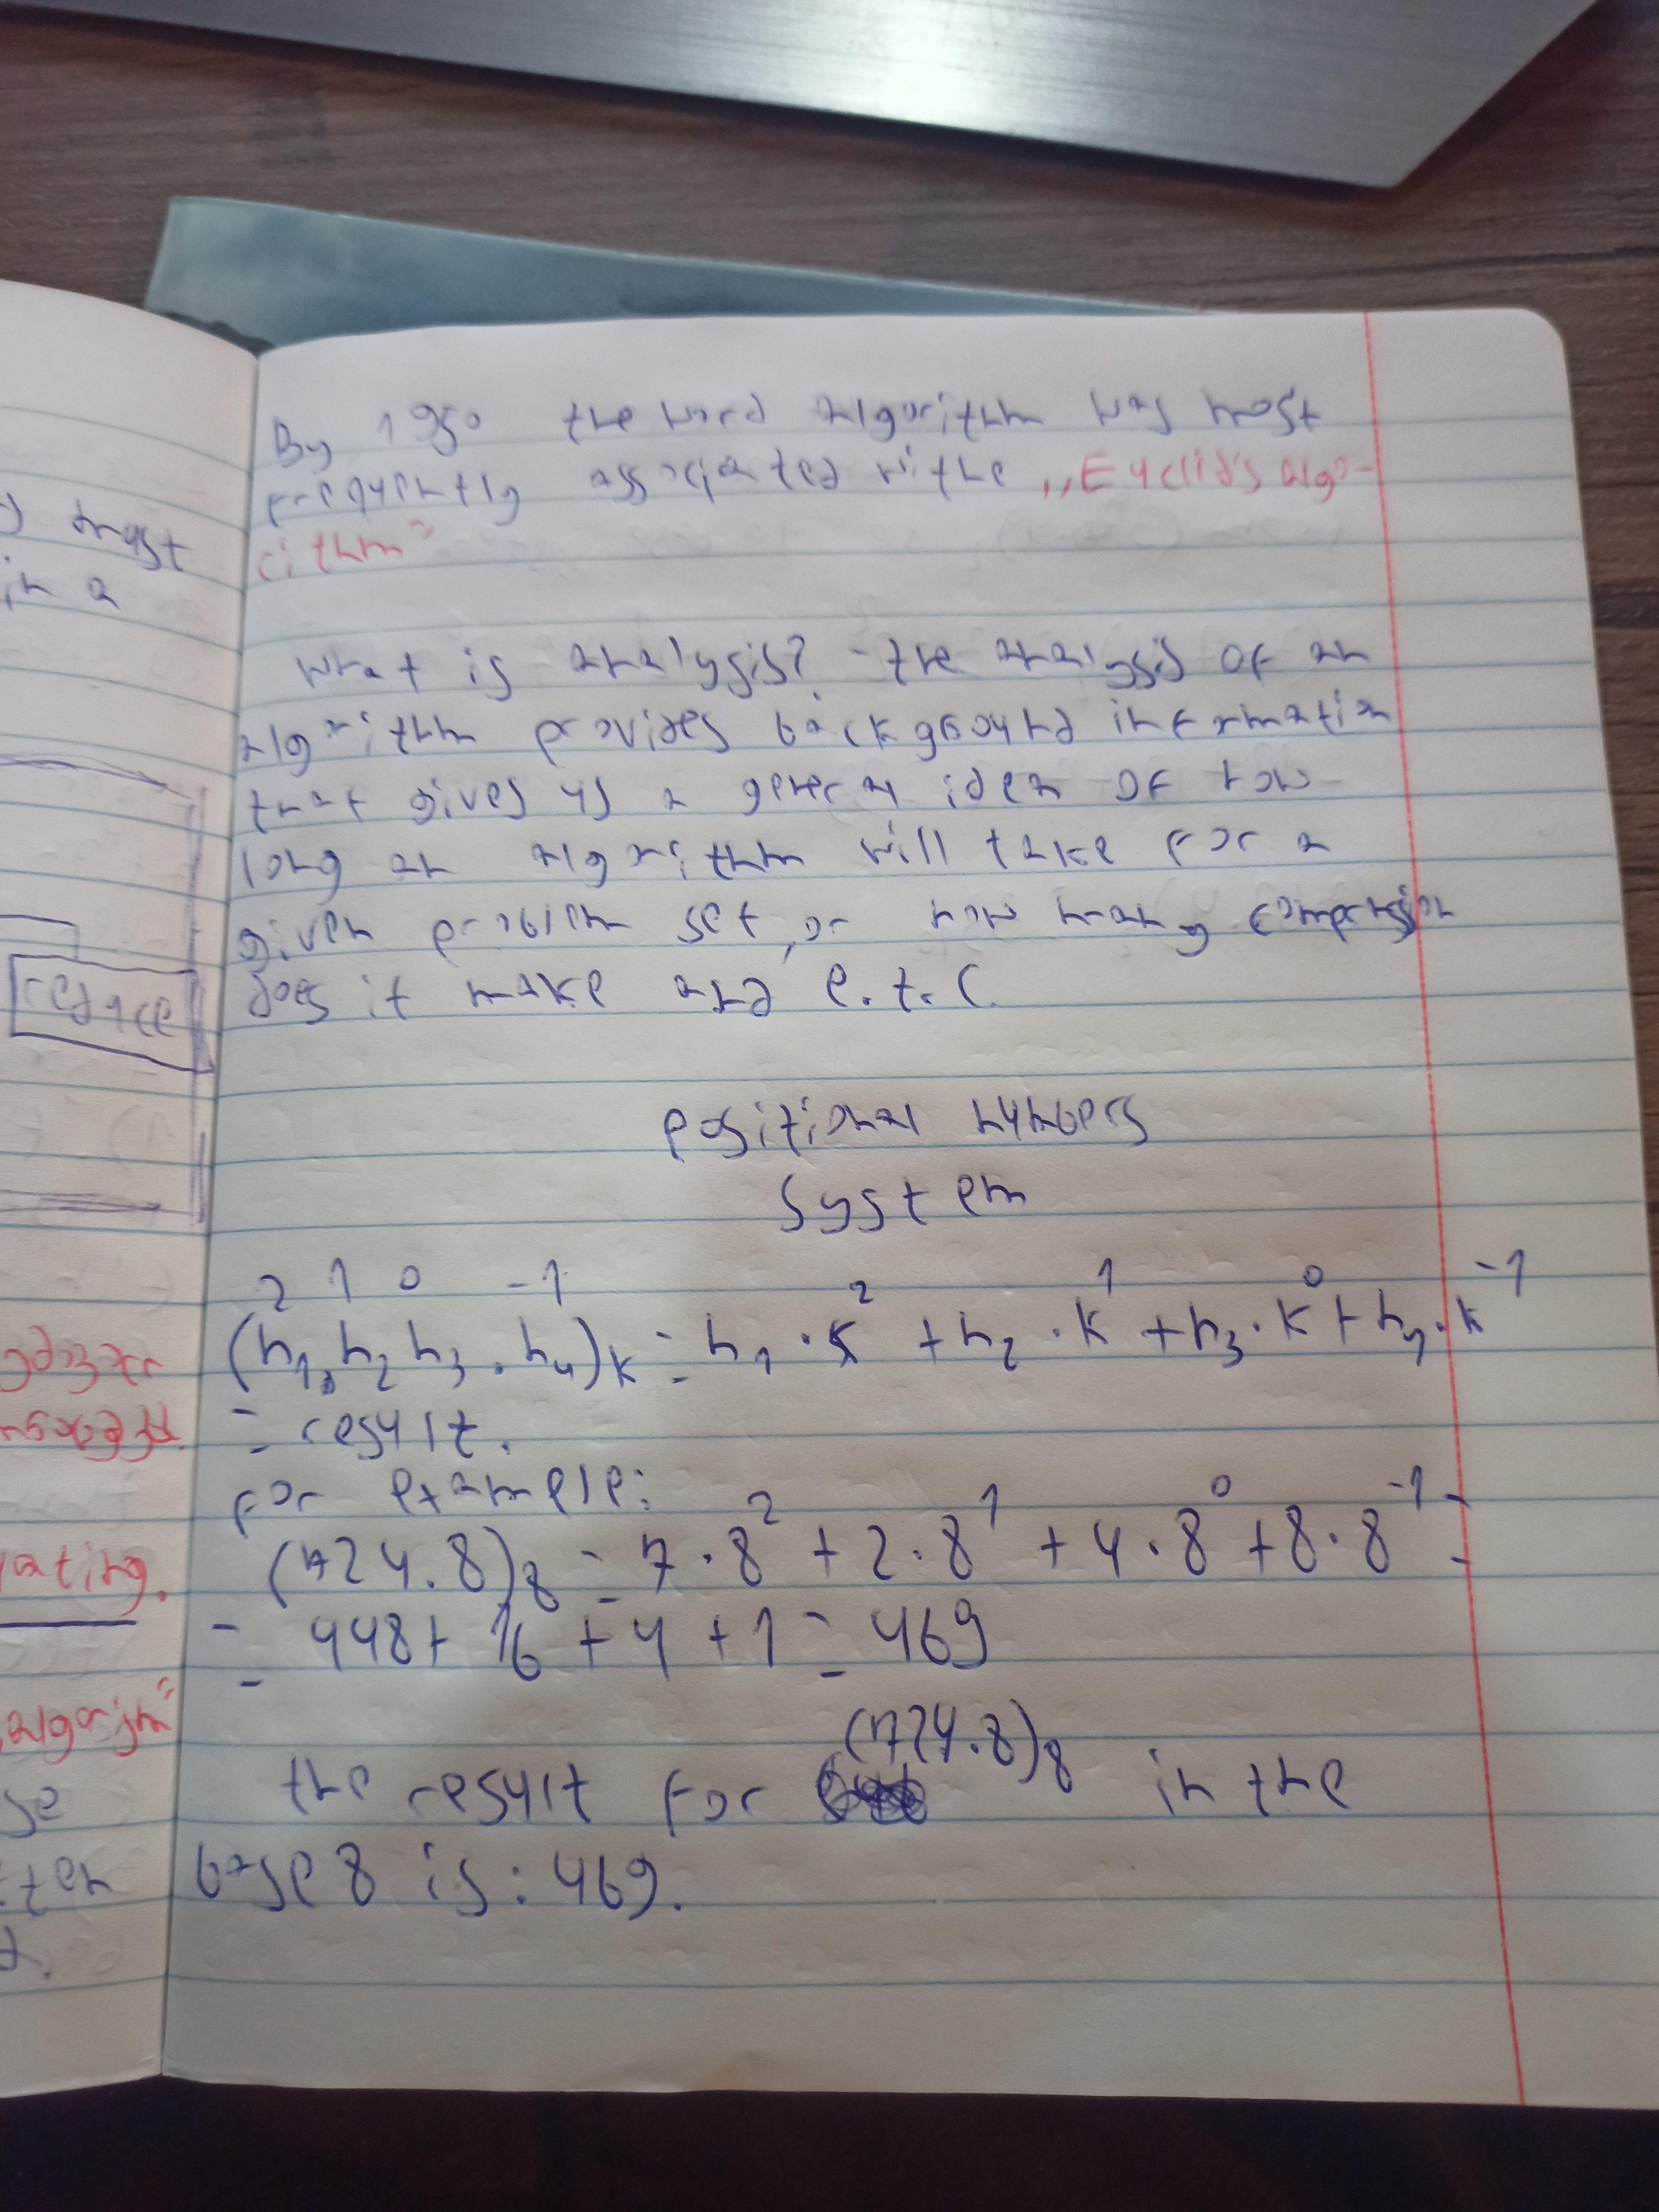 By 1950 the word algorithm was most
frequently associated withe „Euclid's algo-
rithm"
what is analysis? - the analysis of an
algorithm provides background information
that gives us a general idea of how
long an algorithm will take for a
given problem set, or how many comparsion
does it make and e.t.c.
positional numbers
system
2 1 0 -1
(n₁, n₂ n₃ . n₄)ₖ = n₁ · k² + n₂ · k¹ + n₃ · k⁰ + n₄ · k⁻¹
= result.
for example:
(724.8)₈ = 7 · 8² + 2 · 8¹ + 4 · 8⁰ + 8 · 8⁻¹ =
= 448 + 16 + 4 + 1 = 469
(724.8)₈
the result for in the
base 8 is: 469.
trust
in a
reduce
rating.
algorism"
se